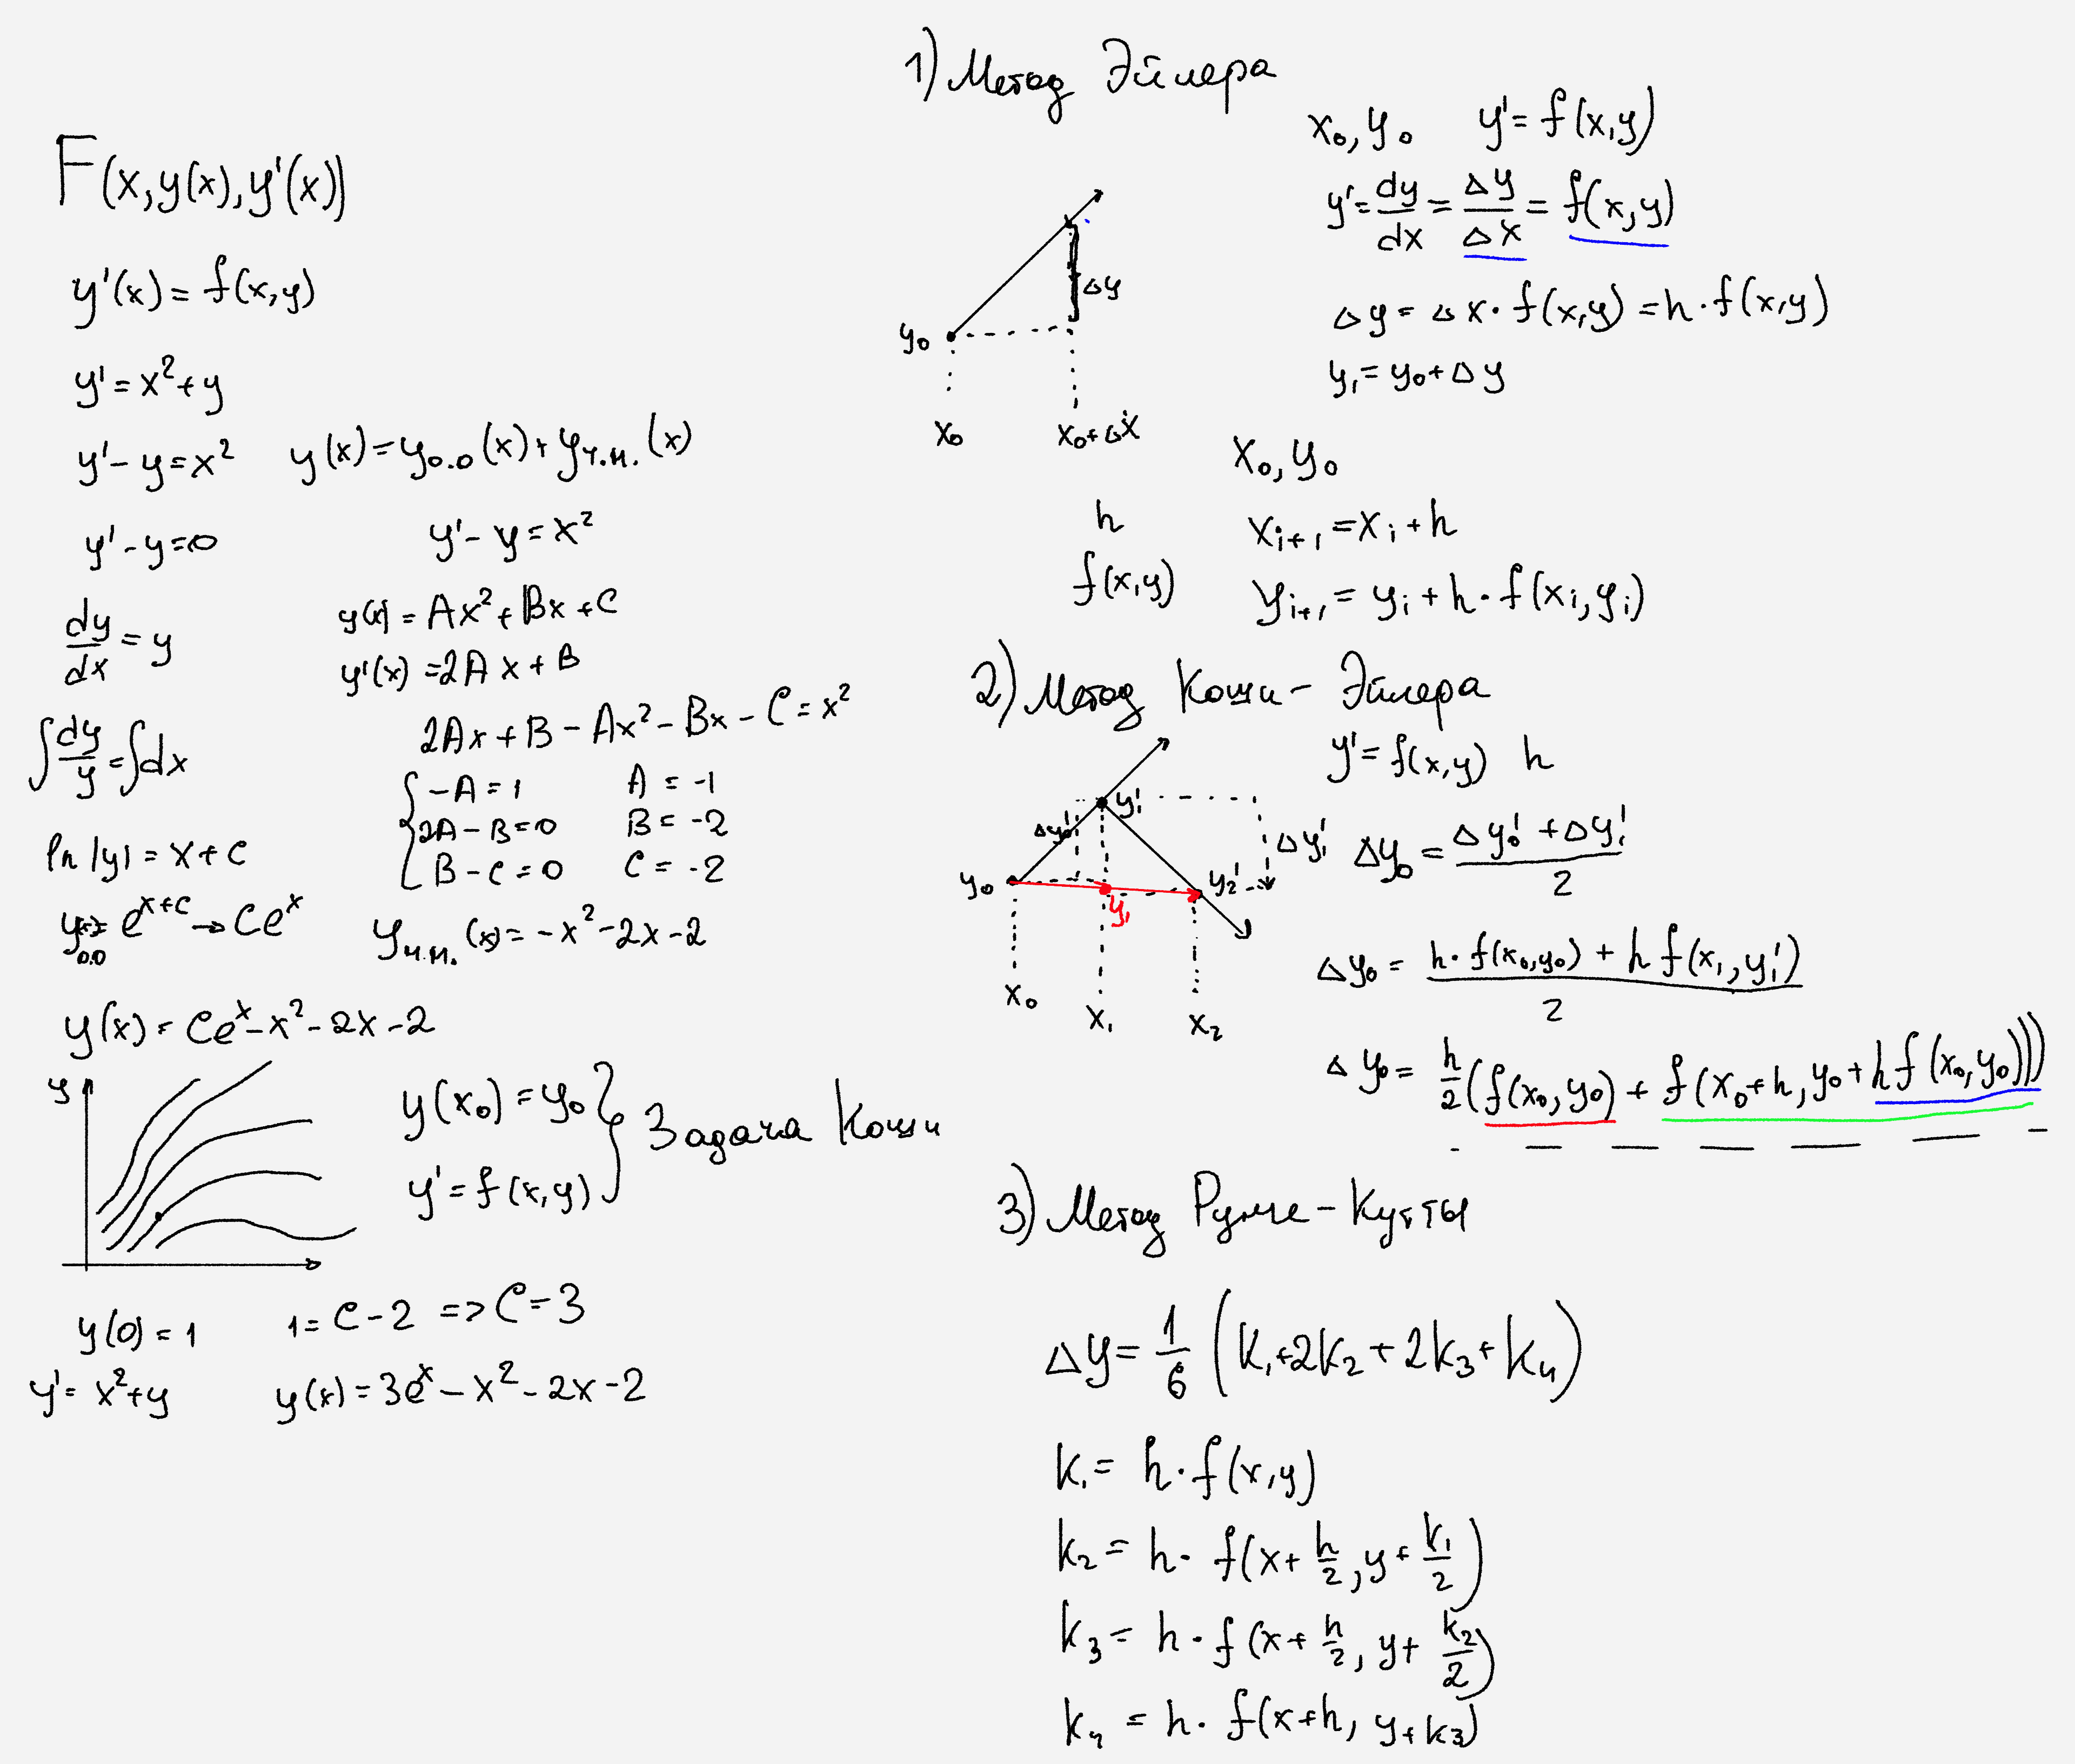 F(x, y(x), y'(x))
y'(x) = f(x,y)
y' = x² + y
y' - y = x²   y(x) = y₀.₀(x) + yч.н.(x)
y' - y = 0   y' - y = x²
dy/dx = y   y(x) = Ax² + Bx + C
y'(x) = 2Ax + B
∫dy/y = ∫dx   2Ax + B - Ax² - Bx - C = x²
{ -A = 1   A = -1
2A - B = 0   B = -2
B - C = 0   C = -2
ln|y| = x + C
y(x)₀.₀ = e^(x+c) → Ce^x   yч.н.(x) = -x² - 2x - 2
y(x) = Ce^x - x² - 2x - 2
y
y(x₀) = y₀ } Задача Коши
y' = f(x,y)
y(0) = 1   1 = C - 2 => C = 3
y' = x² + y   y(x) = 3e^x - x² - 2x - 2
1) Метод Эйлера
x₀, y₀   y' = f(x,y)
y' = dy/dx = Δy/Δx = f(x,y)
Δy = Δx · f(x,y) = h · f(x,y)
y₁ = y₀ + Δy
y₀   Δy
x₀   x₀+Δx
x₀, y₀
h   xᵢ₊₁ = xᵢ + h
f(x,y)   yᵢ₊₁ = yᵢ + h · f(xᵢ, yᵢ)
2) Метод Коши - Эйлера
y' = f(x,y)   h
y₁'
Δy₀'   Δy₁'   Δy₀ = (Δy₀' + Δy₁')/2
y₀   y₁   y₂'
x₀   x₁   x₂
Δy₀ = (h · f(x₀,y₀) + h f(x₁, y₁'))/2
Δy₀ = h/2 (f(x₀, y₀) + f(x₀+h, y₀ + h f(x₀, y₀)))
3) Метод Рунге - Кутты
Δy = 1/6 (k₁ + 2k₂ + 2k₃ + k₄)
k₁ = h · f(x,y)
k₂ = h · f(x + h/2, y + k₁/2)
k₃ = h · f(x + h/2, y + k₂/2)
k₄ = h · f(x+h, y+k₃)